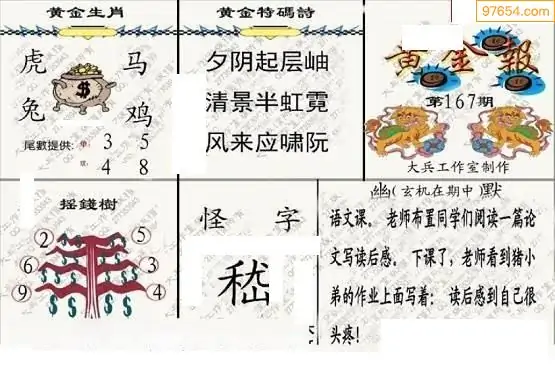 黄金生肖
虎 马
兔 鸡
尾數提供:
单: 3 5
4 8
黄金特碼詩
夕阴起层岫
清景半虹霓
风来应啸阮
97654.com
黄金報
第167期
大兵工作室制作
摇錢樹
2 5
6 3
9 4
怪 字
嵇
幽(玄机在期中)默
语文课。老师布置同学们阅读一篇论
文写读后感。下课了，老师看到猪小
弟的作业上面写着：读后感到自己很
头疼!